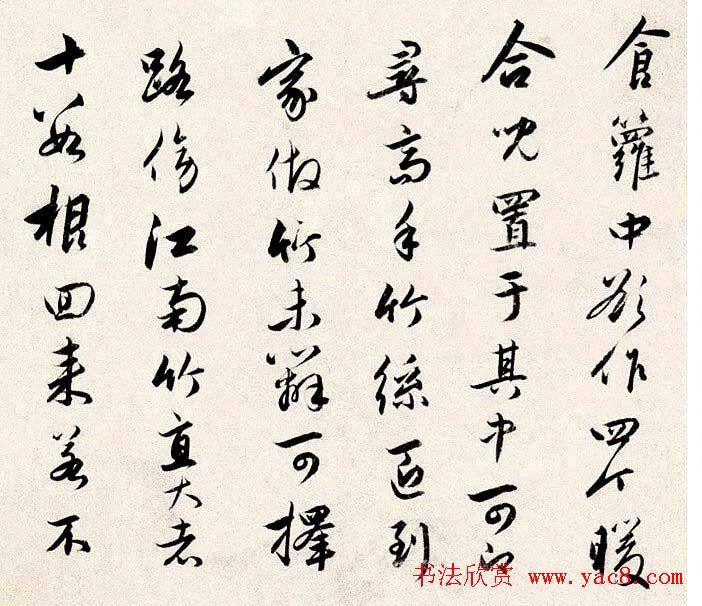 食籮中欲作四个暖
合兒置于其中可即
尋高手竹絲匠到
家做竹未辦可擇
路傍江南竹直大者
十數根回來若不
书法欣赏 www.yac8.com